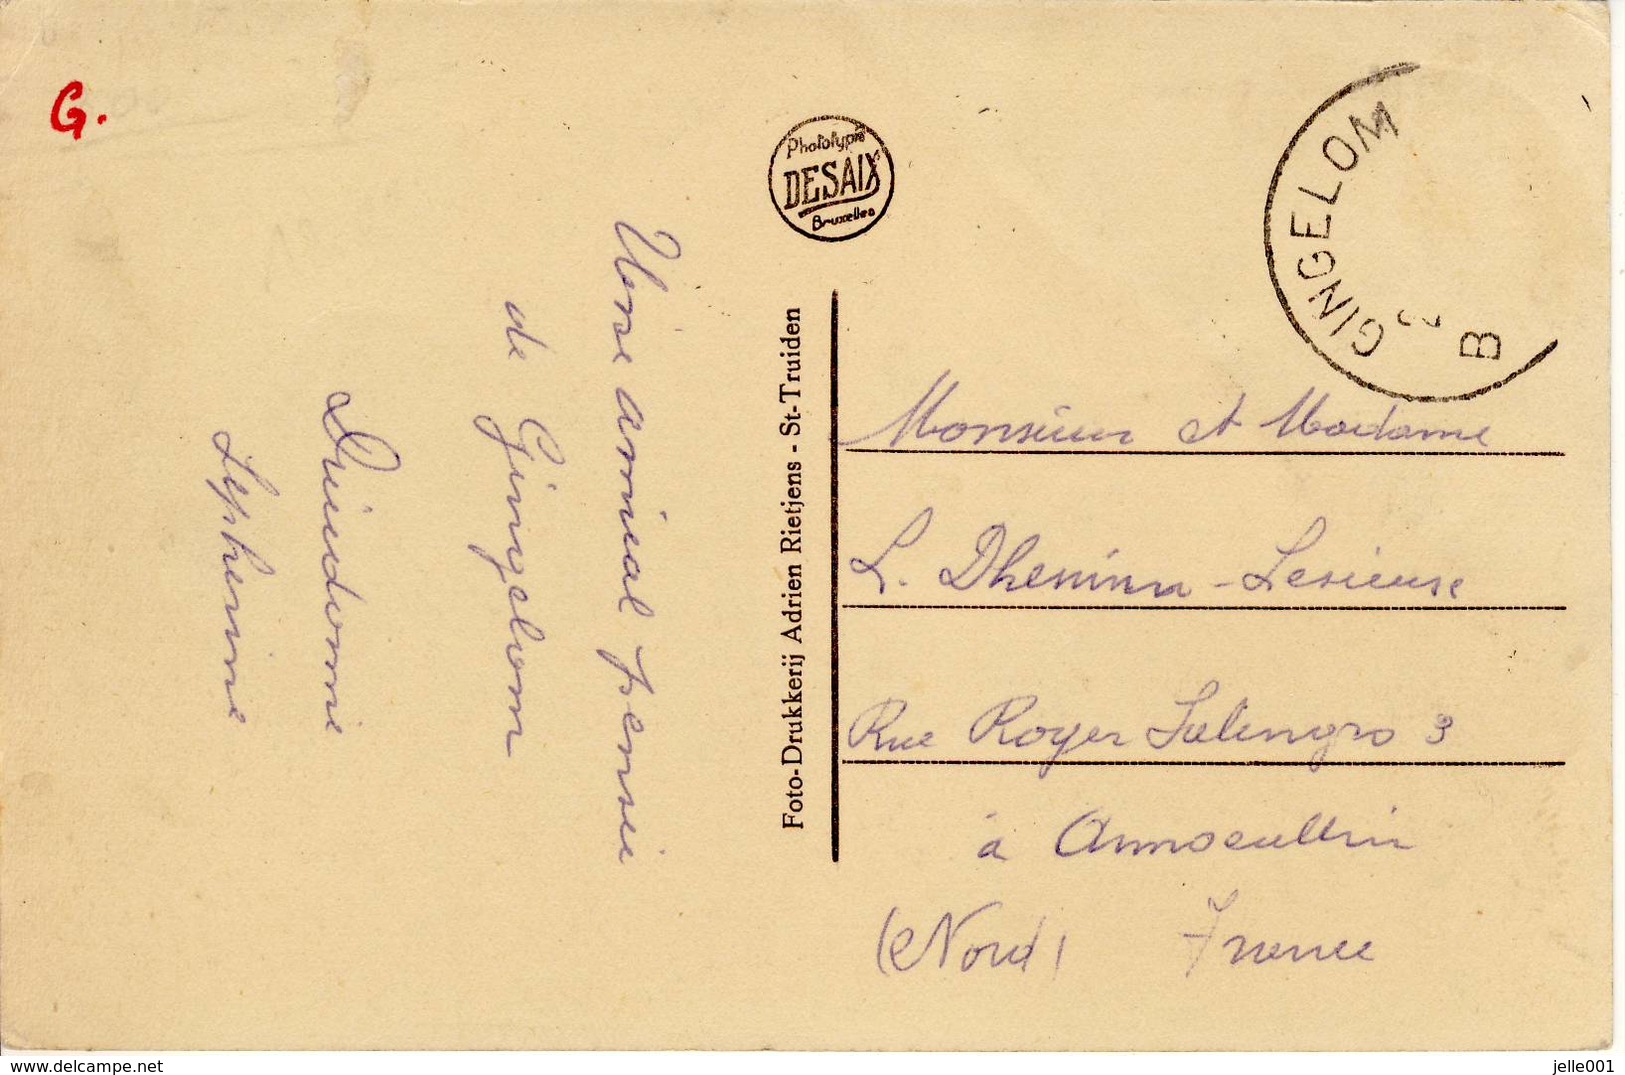 G.
Phototypie
DESAIX
Bruxelles
GINGELOM
B
Foto-Drukkerij Adrien Rietjens - St-Truiden
amical pensée
de Gingelom
Monsieur et Madame
L. Dheninn - Lesieuse
Rue Roger Salengro 3
à Annoeullin
(Nord) France
https://www.delcampe.net
jelle001